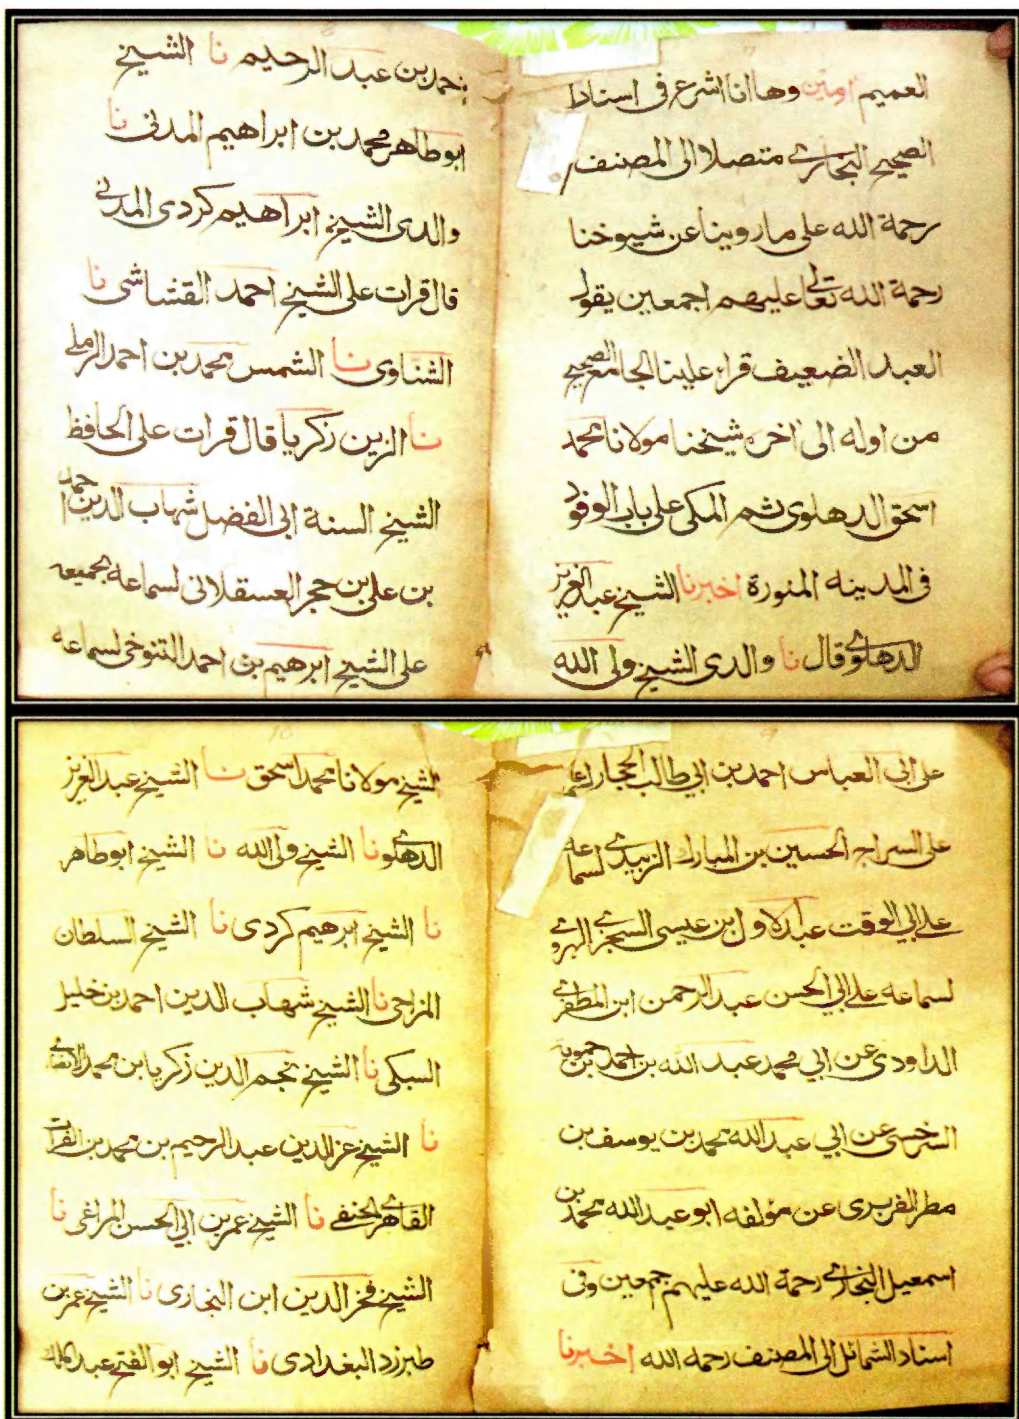 العميم امين وها انا اشرع في اسنادا
الصحيح البخاري متصلا الى المصنف
رحمة الله على ماروينا عن شيوخنا
رحمة الله تعالى عليهم اجمعين يقول
العبد الضعيف قراء علينا الجامع الصحيح
من اوله الى اخره شيخنا مولانا محمد
اسحق الدهلوى ثم المكى على باب الوفود
فى المدينه المنورة اخبرنا الشيخ عبد العزيز
الدهلوي قال نا والدى الشيخ ولى الله
احمد بن عبد الرحيم نا الشيخ
ابو طاهر محمد بن ابراهيم المدنى نا
والدى الشيخ ابراهيم كردى المدنى
قال قرات على الشيخ احمد القشاشى نا
الشناوى نا الشمس محمد بن احمد الرملي
نا الزين زكريا قال قرات على الحافظ
الشيخ السنة ابى الفضل شهاب الدين احمد
بن على بن حجر العسقلانى لسماعه لجميعه
على الشيخ ابرهيم بن احمد التنوخى لسماعه
على ابى العباس احمد بن ابي طالب الحجار
على السراج الحسين بن المبارك الزبيدي لسماعه
علي ابي الوقت عبد الاول ابن عيسى السجزي الهروي
لسماعه علي ابي الحسن عبد الرحمن ابن المظفر
الداودى عن ابي محمد عبد الله بن احمد بن حمويه
السرخسى عن ابي عبد الله محمد بن يوسف بن
مطر الفربرى عن مؤلفه ابو عبد الله محمد بن
اسمعيل البخاري رحمة الله عليهم جمعين وفى
اسناد الشمائل الى المصنف رحمه الله اخبرنا
الشيخ مولانا محمد اسحق نا الشيخ عبد العزيز
الدهلوي نا الشيخ ولى الله نا الشيخ ابو طاهر
نا الشيخ ابرهيم كردى نا الشيخ السلطان
المزاحى نا الشيخ شهاب الدين احمد بن خليل
السبكى نا الشيخ نجم الدين زكريا بن محمد الانصاري
نا الشيخ عز الدين عبد الرحيم بن محمد بن الفرات
القاهري الحنفي نا الشيخ عمر بن ابي الحسن المراغى نا
الشيخ فخر الدين ابن البخارى نا الشيخ عمر بن
طبرزد البغدادى نا الشيخ ابو الفتح عبد الملك